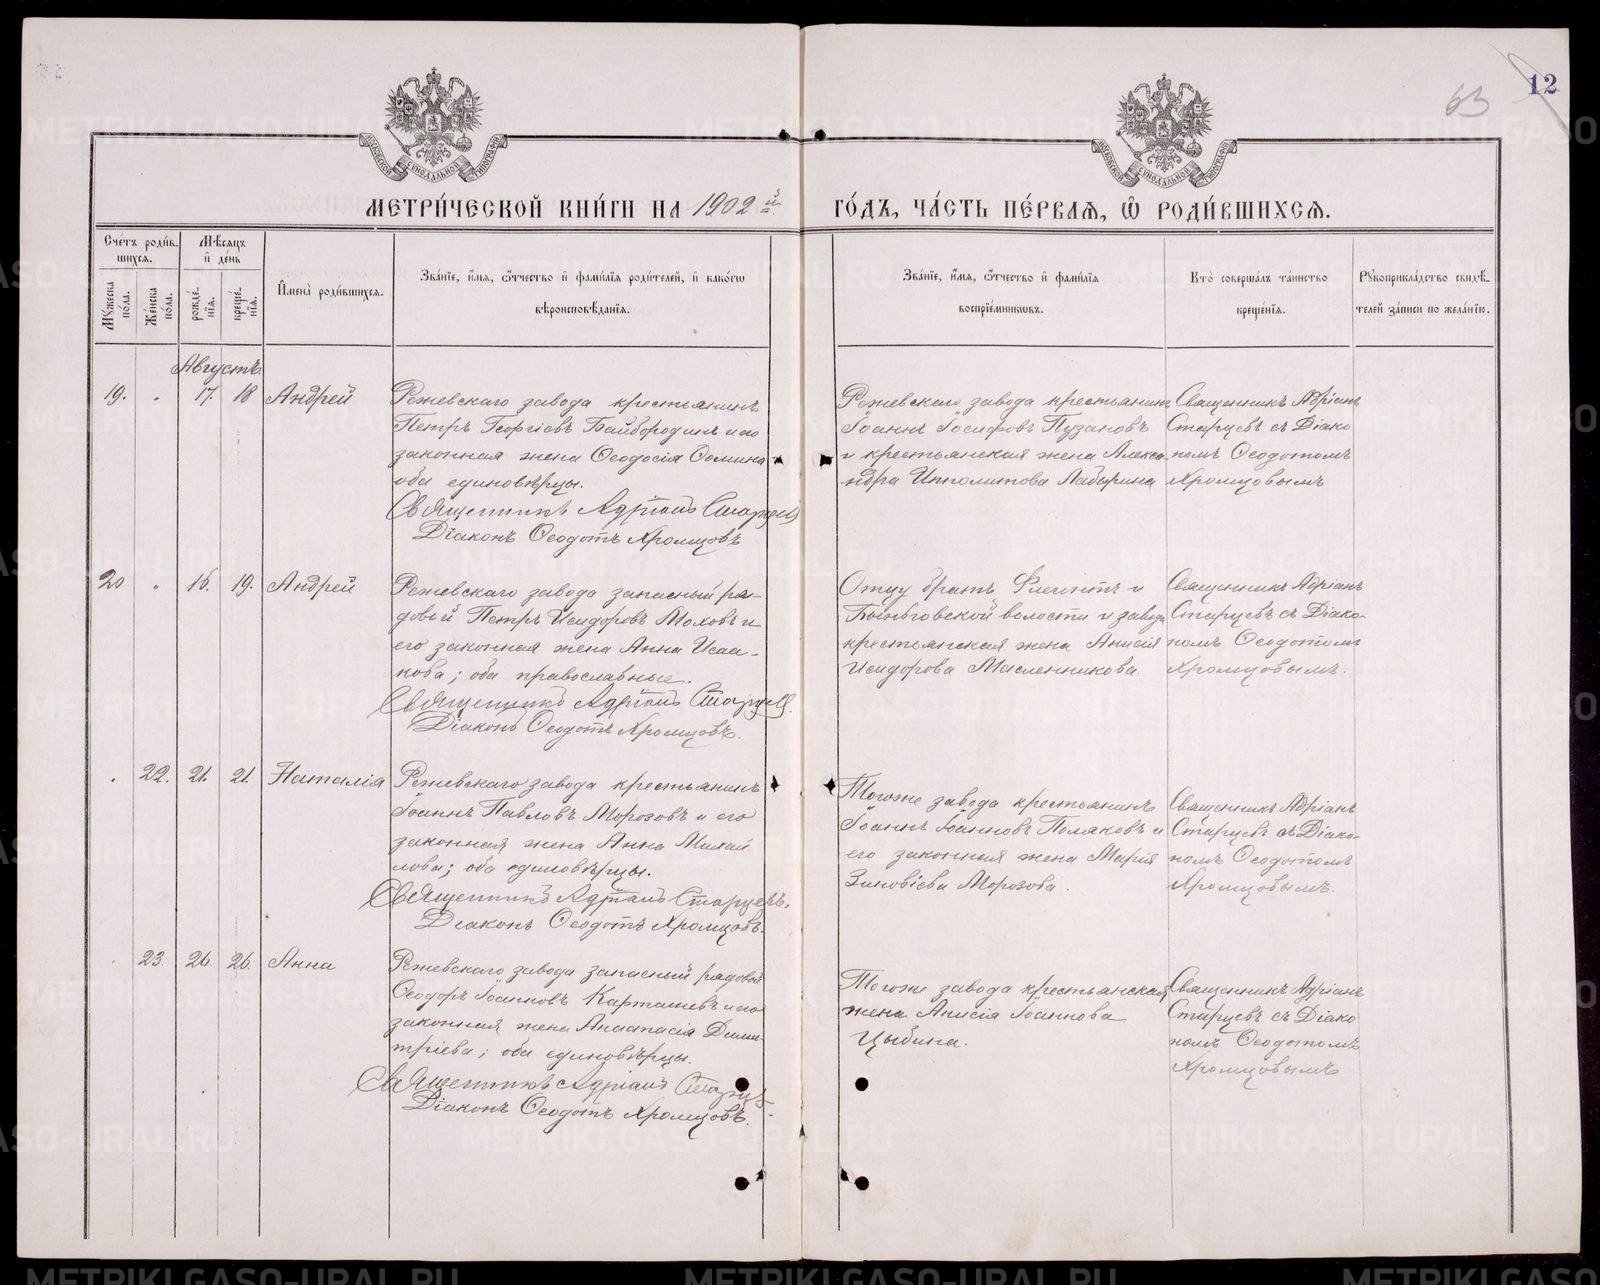 63
12
МОСКОВСКОЙ СУНОДАЛЬНОЙ ТИПОГРАФІИ
МОСКОВСКОЙ СУНОДАЛЬНОЙ ТИПОГРАФІИ
МЕТРИ́ЧЕСКОЙ КНИ́ГИ НА 1902 й
ГО́ДЪ, ЧА́СТЬ ПЕ́РВАѦ, Ѡ҆ РОДИ́ВШИХСѦ.
Сче́тъ роди́в-
шихсѧ.
Мꙋ́жеска
по́ла.
Же́нска
по́ла.
Мѣ́сѧцъ
и҆ де́нь
рожде́-
нїѧ.
креще́-
нїѧ.
И҆мена̀ роди́вшихсѧ.
Зва́нїе, и҆́мѧ, ѻ҆́тчество и҆ фами́лїѧ роди́телей, и҆ како́гѡ
вѣроисповѣ́данїѧ.
Зва́нїе, и҆́мѧ, ѻ҆́тчество и҆ фами́лїѧ
воспрїе́мникѡвъ.
Кто̀ соверша́лъ та́инство
креще́нїѧ.
Рꙋкоприкла́дство свидѣ́-
телей за́писи по жела́нїю.
Августъ.
19. " 17. 18 Андрей
Режевскаго завода крестьянинъ
Петръ Георгіевъ Байбородинъ и его
законная жена Ѳеодосія Ѳомина
оба единовѣрцы.
Священникъ Адріанъ Старцевъ
Діаконъ Ѳеодотъ Хромцовъ
Режевскаго завода крестьянинъ
Іоаннъ Іосифовъ Пузановъ
и крестьянская жена Алекса
ндра Ипполитова Ладыгина
Священникъ Адріанъ
Старцевъ съ Діако
номъ Ѳеодотомъ
Хромцовымъ
20 " 16. 19. Андрей
Режевскаго завода запасный ря-
довой Петръ Исидоровъ Моховъ и
его законная жена Анна Исаа-
кова; оба православные.
Священникъ Адріанъ Старцевъ.
Діаконъ Ѳеодотъ Хромцовъ.
Отцу братъ Флегонтъ и
волости и завода
крестьянская жена Анисія
Исидорова Масленникова.
Священникъ Адріанъ
Старцевъ съ Діако-
номъ Ѳеодотомъ
Хромцовымъ.
. 22. 21. 21. Наталія
Режевскаго завода крестьянинъ
Іоаннъ Павловъ Морозовъ и его
законная жена Анна Михай
лова; оба единовѣрцы.
Священникъ Адріанъ Старцевъ.
Діаконъ Ѳеодотъ Хромцовъ.
Тогоже завода крестьянинъ
Іоаннъ Іоанновъ Поляковъ и
его законная жена Марія
Зиновіева Морозова.
Священникъ Адріанъ
Старцевъ съ Діако-
номъ Ѳеодотомъ
Хромцовымъ.
. 23. 26 26. Анна
Режевскаго завода запасный рядовой
Ѳеодоръ Іоанновъ Карташевъ и его
законная жена Анастасія Дими-
тріева; оба единовѣрцы.
Священникъ Адріанъ Старцевъ.
Діаконъ Ѳеодотъ Хромцовъ.
Тогоже завода крестьянская
жена Анисія Іоаннова
Цыбина.
Священникъ Адріанъ
Старцевъ съ Діако
номъ Ѳеодотомъ
Хромцовымъ
METRIKI.GASO-URAL.RU